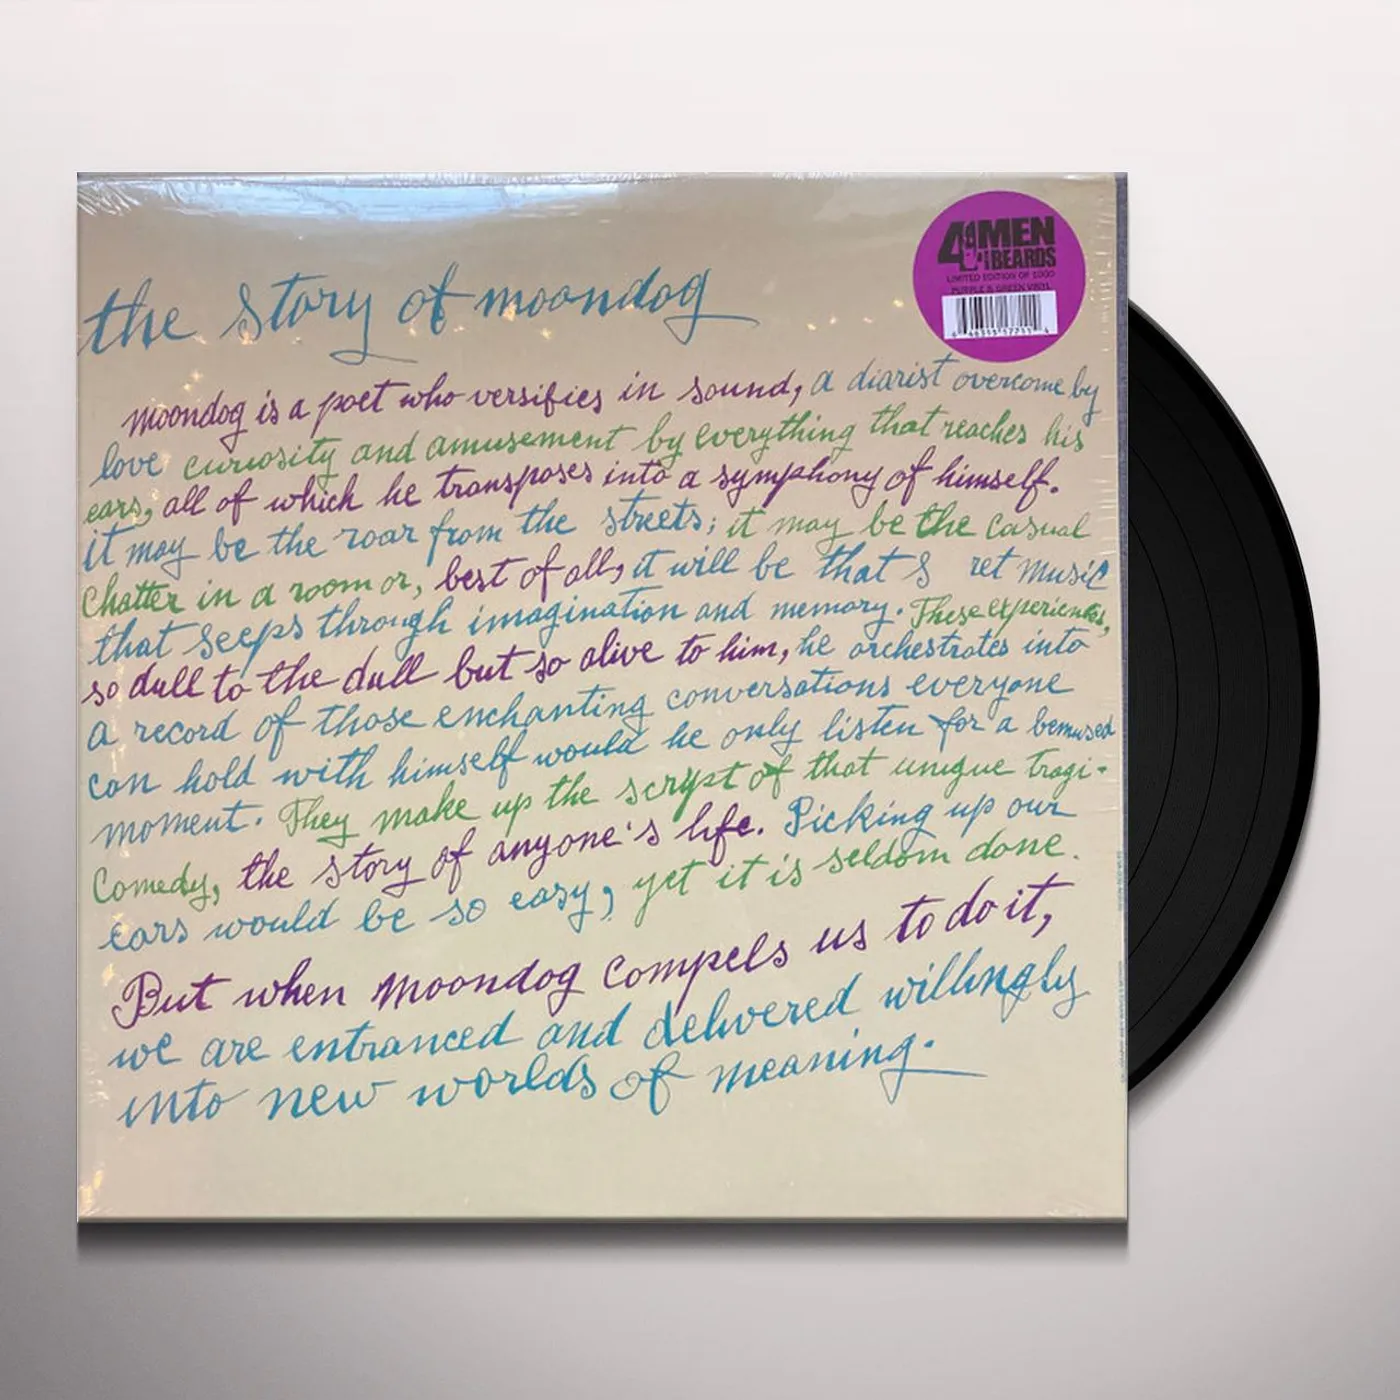 4 MEN
WITH BEARDS
LIMITED EDITION OF 1000
PURPLE & GREEN VINYL
the story of moondog
moondog is a poet who versifies in sound, a diarist overcome by
love curiosity and amusement by everything that reaches his
ears, all of which he transposes into a symphony of himself.
it may be the roar from the streets; it may be the casual
chatter in a room or, best of all, it will be that s ret music
that seeps through imagination and memory. These experiences,
so dull to the dull but so alive to him, he orchestrates into
a record of those enchanting conversations everyone
can hold with himself would he only listen for a bemused
moment. They make up the script of that unique tragi-
Comedy, the story of anyone's life. Picking up our
ears would be so easy, yet it is seldom done.
But when moondog compels us to do it,
we are entranced and delivered willingly
into new worlds of meaning.